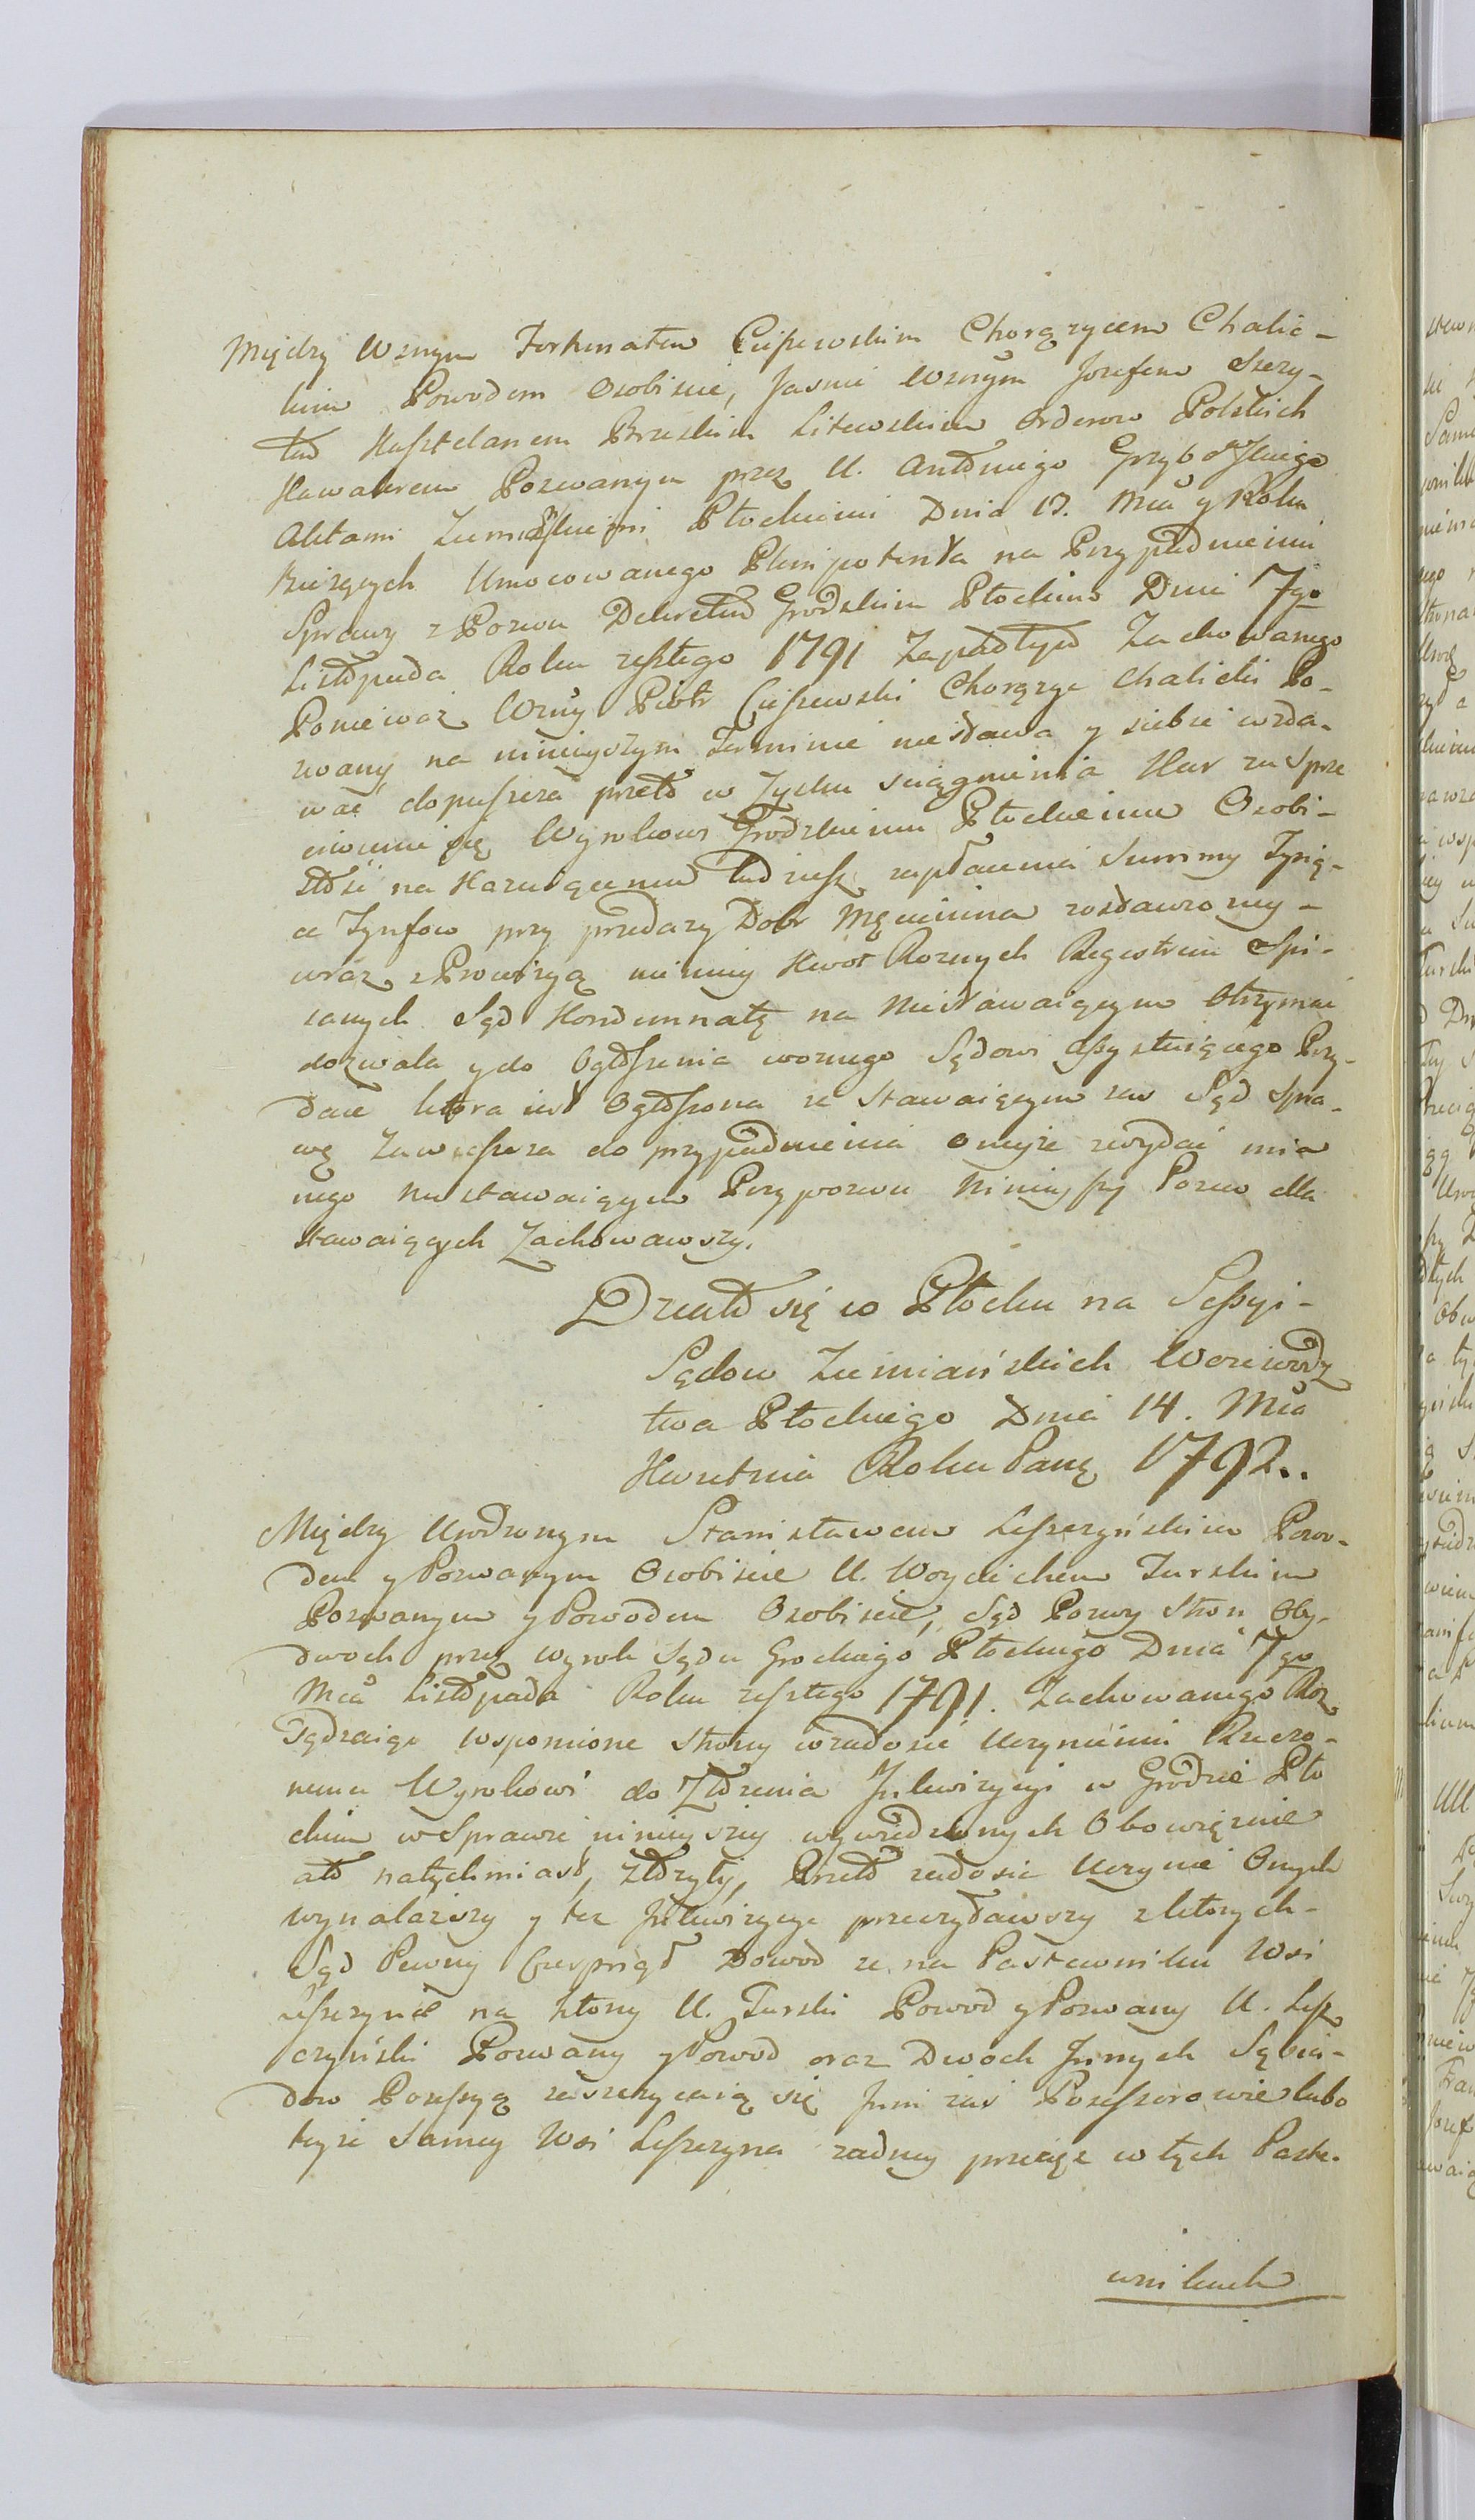 Między Wznym Fortunatem Cieszewskim Chorążycem Chalic-
kim Powodem Osobiscie, Jasnie Wznym Jozefem Szezy-
tem Kasztelanem Brzeskim Litewskim Orderow Polskich
Kawalerem Pozwanym przez U. Antoniego Grzybowskiego
Aktami Ziemskiemi Płockiemi Dnia 13. Mca y Roku
bieżących Umocowanego Plenipotenta na Przypadnieniu
Sprawy z Pozwu Dekretem Grodzkim Płockim Dnia 7go
Listopada Roku zeszłego 1791 Zapadłym Zachowanego
Ponieważ Wzny Piotr Cieszewski Chorąży Chalicki Po-
zwany na ninieyszym Terminie niestawa y siebie wzda-
wać dopuszcza przeto w Zysku sciągnienia Kar za Sprze
ciwienie się Wyrokowi Grodzkiemu Płockiemu Osobi-
stość na Kazuiącemu tudziesz zapłacenia Summy Tysią-
ca Tynfow przy przedazy Dobr Męcinina zostawzoney-
wraz z Prowizyą niemniey Kwot Roznych Regestrem Spi-
sanych Sąd Kondemnatę na Niestawaiącym Otrzymać
dozwala y do Ogłoszenia woznego Sądowi assystuiącego Przy-
daie ktora iest Ogłoszona ze Stawaiącym zas Sąd Spra-
wę Zawiesza do przypadnienia oneyże z wydać mia
nego Niestawaiącym Przypozwu Ninieyszy Pozew dla
Stawaiących Zachowawszy.
Działo się w Płocku na Sessyi-
Sądow Ziemiańskich Woiewodz
twa Płockiego Dnia 14. Mca
Kwietnia Roku Pańę 1792..
Między Urodzonym Stanisławem Leszczyńskim Powo-
dem y Pozwanym Osobiscie U. Woyciechem Turskim
Pozwanym y Powodem Osobiscie, Sąd Pozwy Stron Oby-
dwoch przez wyrok Sądu Grockiego Płockiego Dnia 7go
Mca Listopada Roku zeszłego 1791. Zachowanego Roz
Sądzaiąc Wspomione Strony wzadosić Uczynieniu Rzeczo-
nemu Wyrokowi do Złożenia Inkwizycyi w Grodzie Pło
ckim w Sprawie ninieyszey wywiedzionych Obowięzuie
ato natychmiast, złożyły, Przeto zadosić Uczynić Onych
wynalazszy y też Inkwizycye przeczytawszy z ktorych-
Sąd Pewny Czerpiąć Dowod ze na Pastewniku Wsi
Leszczyna na ktory U. Turski Powod y Pozwany U. Lesz
czyński Pozwany y Powod oraz Dwoch Innych Sąsia-
dow Possessyą zaszczycaią się Inni zas Possessorowie lubo
teyże Samey Wsi Leszczyna zadney przecięż w tych Paste-
wnikach